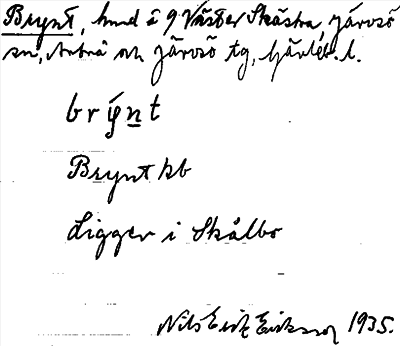 Brynt, hmd å 9 Väster Skästra, Järvsö
sn, Arbrå och Järvsö tg, Gävleb. l.
brýṉt
Brynt kb
Ligger i Skålbo
Nils Erik Eriksson 1935.